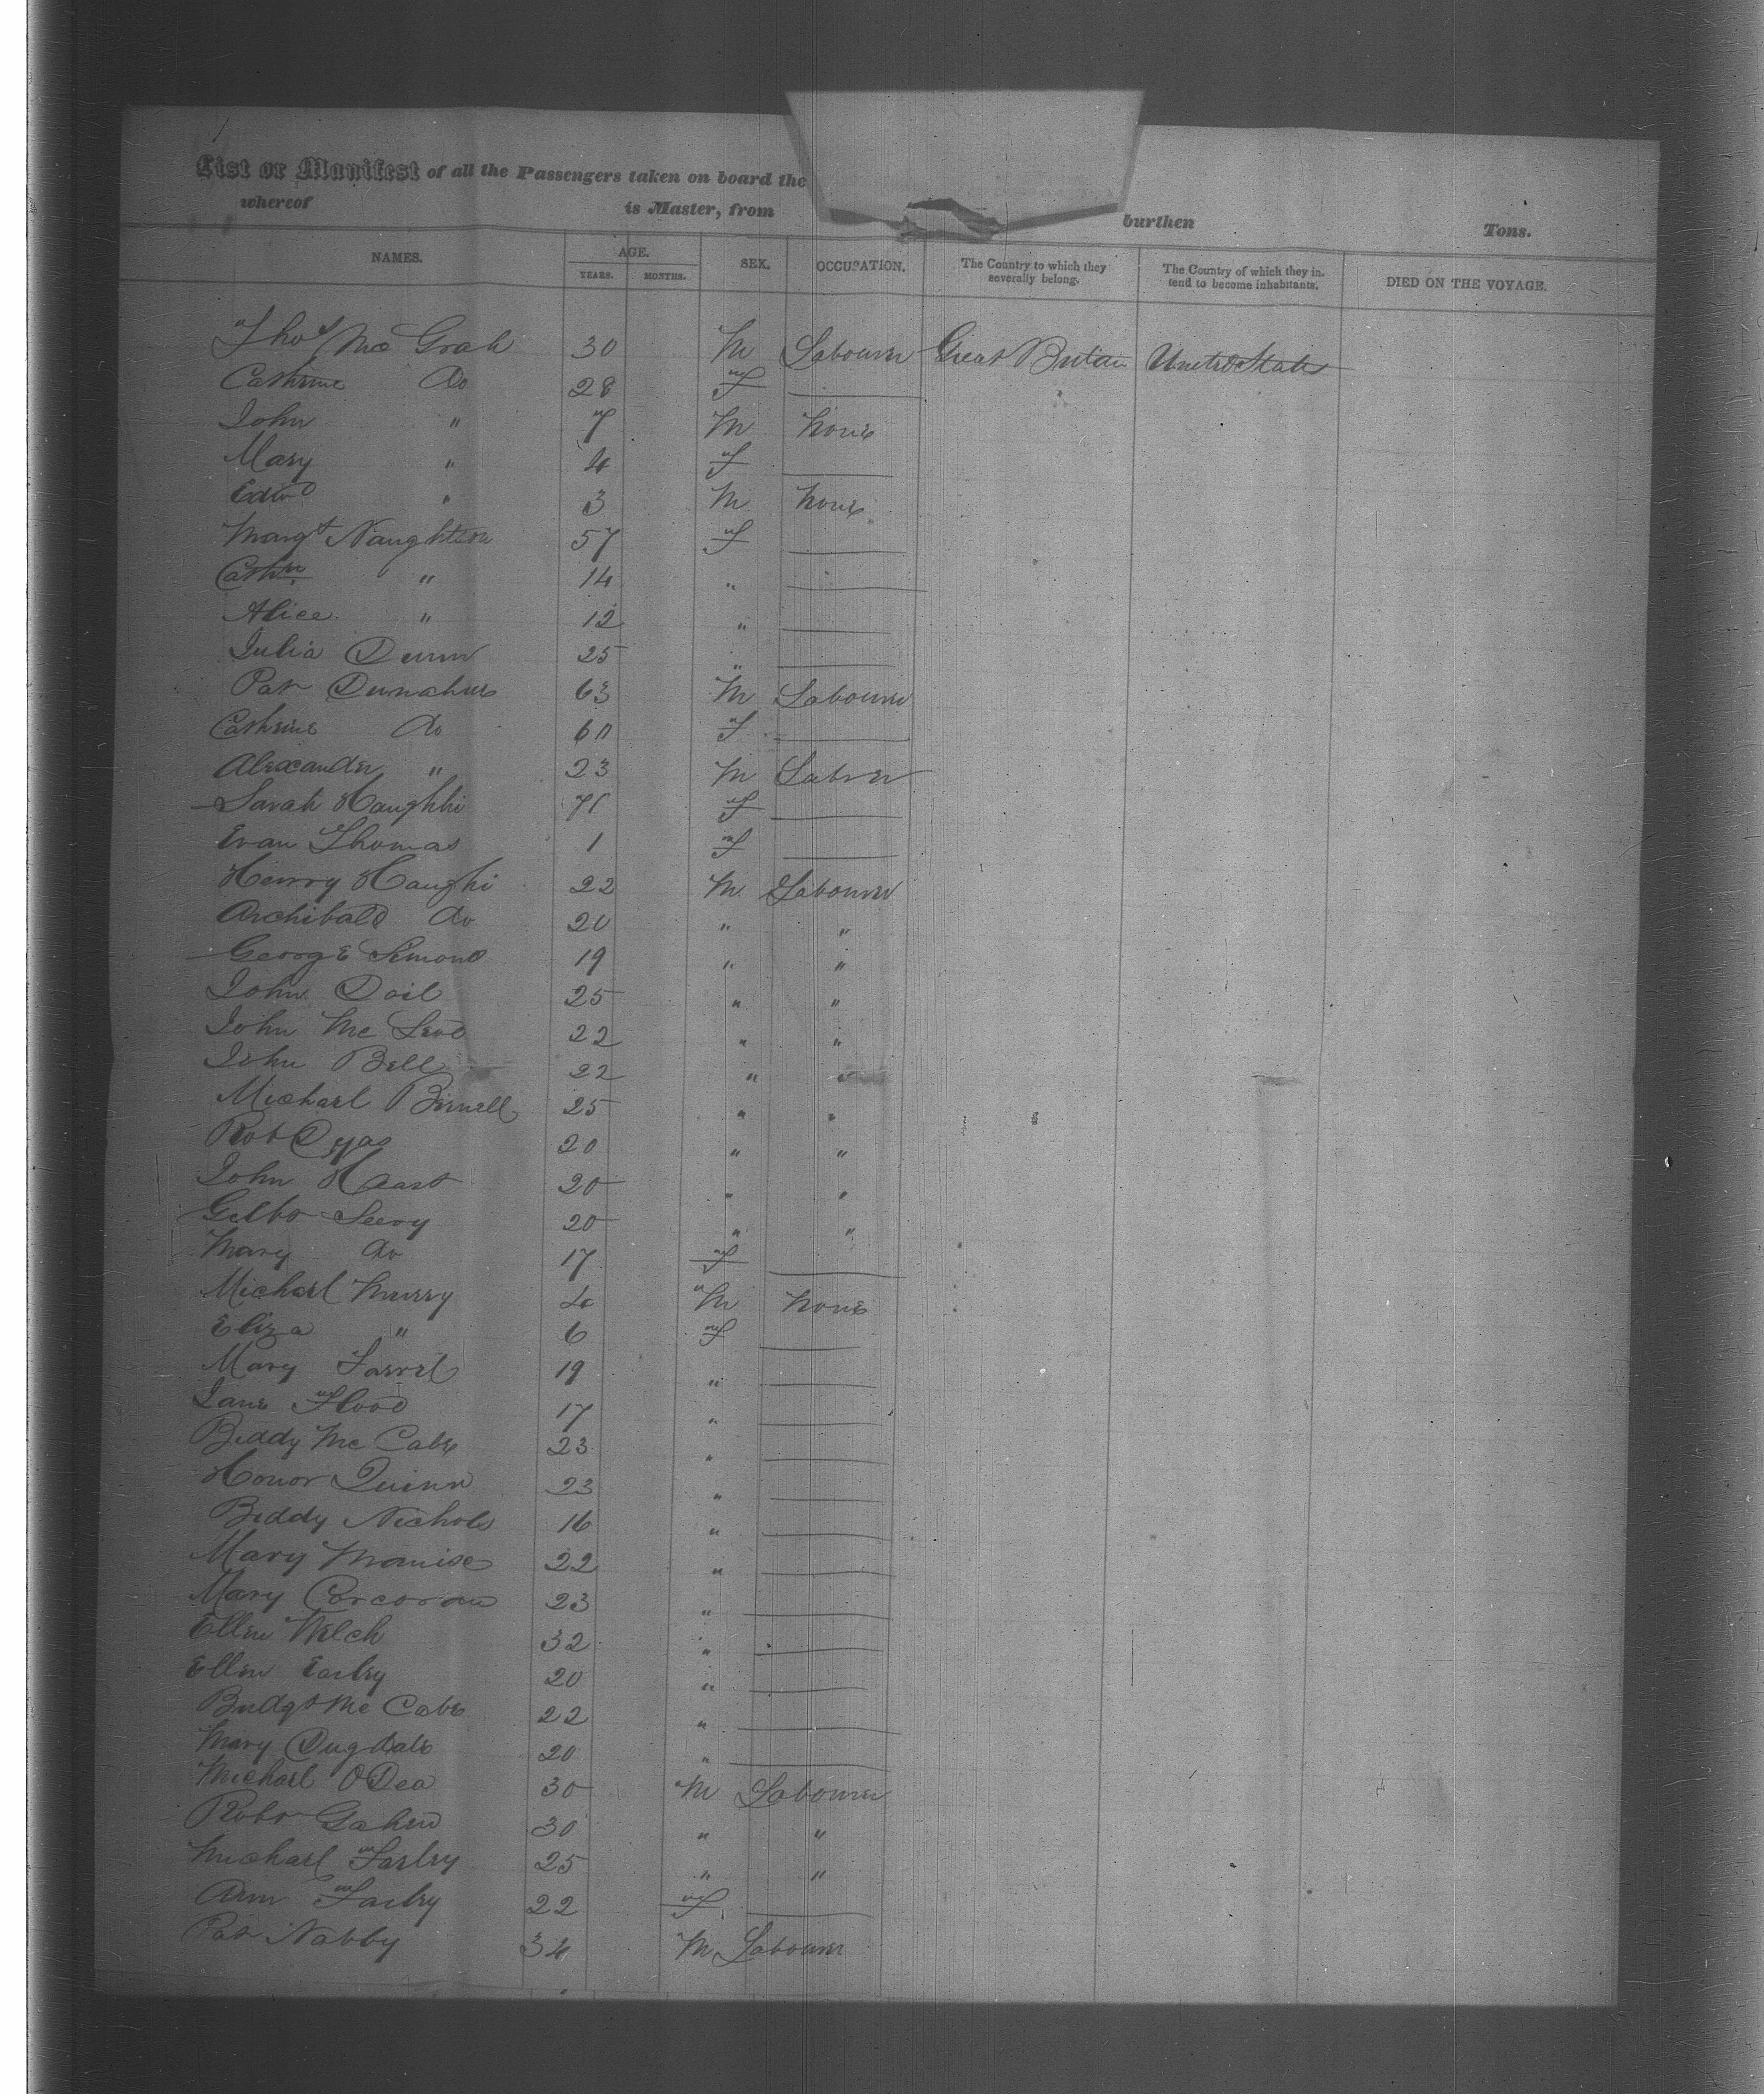 List or Manifest of all the Passengers taken on board the
whereof is Master, from burthen Tons.
NAMES. AGE. YEARS. MONTHS. SEX. OCCUPATION. The Country to which they severally belong. The Country of which they intend to become inhabitants. DIED ON THE VOYAGE.
Thos Mc Grah 30 M Labourer Great Britain United States
Cathrine Do 28 f
John " 7 M None
Mary " 4 f
Edwd " 3 M None
Margt Naughton 57 f
Cathn " 14 "
Alice " 12 "
Julia Dunn 25 "
Pat Dunahue 63 M Labourer
Cathrine Do 60 f
Alexander " 23 M Labrer
Sarah f
Evan Thomas 1 f
Henry Haughi 22 M Labourer
Archibald Do 20 " "
George Simond 19 " "
John Doil 25 " "
John Mc Leod 22 " "
John Bell 22 " "
Michael Birnell 25 " "
Rob Dyas 20 " "
John 20 " "
Gilbt Leery 20 " "
Mary Do 17 f
Michael Murry 4 M None
Eliza " 6 f
Mary Farrel 19 "
Jane Flood 17 "
Biddy Mc Cabe 23 "
Honor Quinn 23 "
Biddy Nichols 16 "
Mary 22 "
Mary Corcoran 23 "
Ellen Welch 32 "
Ellen Earley 20 "
Bridgt Mc Cabe 22 "
Mary Dugdale 20 "
Michael O Dea 30 M Labourer
Robt Gahen 30 " "
Michael Farley 25 " "
Ann Farley 22 f
Pat Nabby 34 M Labourer